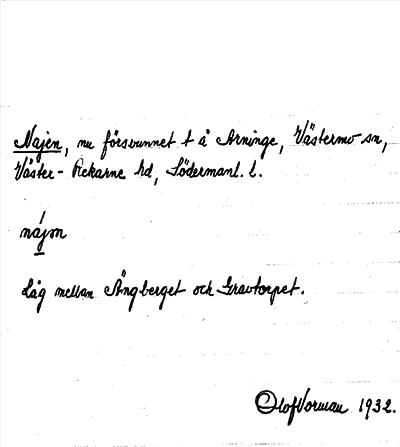 Najen, nu försvunnet t å Arninge, Västermo sn,
Väster-Rekarne hd, Södermanl. l.
nájən
Låg mellan Ängberget och Gravtorpet.
Olof Vorman 1932.